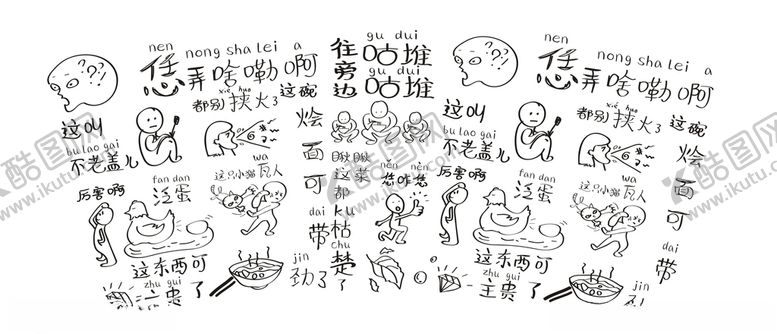 nen
恁
nong sha lei a
弄啥嘞啊
xie huo
都别挟火了
这碗
烩面可
dai
带
jin
劲了
这叫
bu lao gai
不老盖儿
厉害啊
fan dan
泛蛋
wa
这只小猫瓦人
这东西可
zhu gui
主贵了
往旁边
gu dui
咕堆
gu dui
咕堆
瞅瞅
这菜
都
ku
枯
chu
楚
了
nèn nèn
恁咋恁
nen
恁
nong sha lei a
弄啥嘞啊
xie huo
都别挟火了
这碗
烩面可
dai
带
jin
这叫
bu lao gai
不老盖儿
厉害啊
fan dan
泛蛋
wa
这只小猫瓦人
这东西可
zhu gui
主贵了
酷图网
www.ikutu.com
酷图网
www.ikutu.com
酷图网
www.ikutu.com